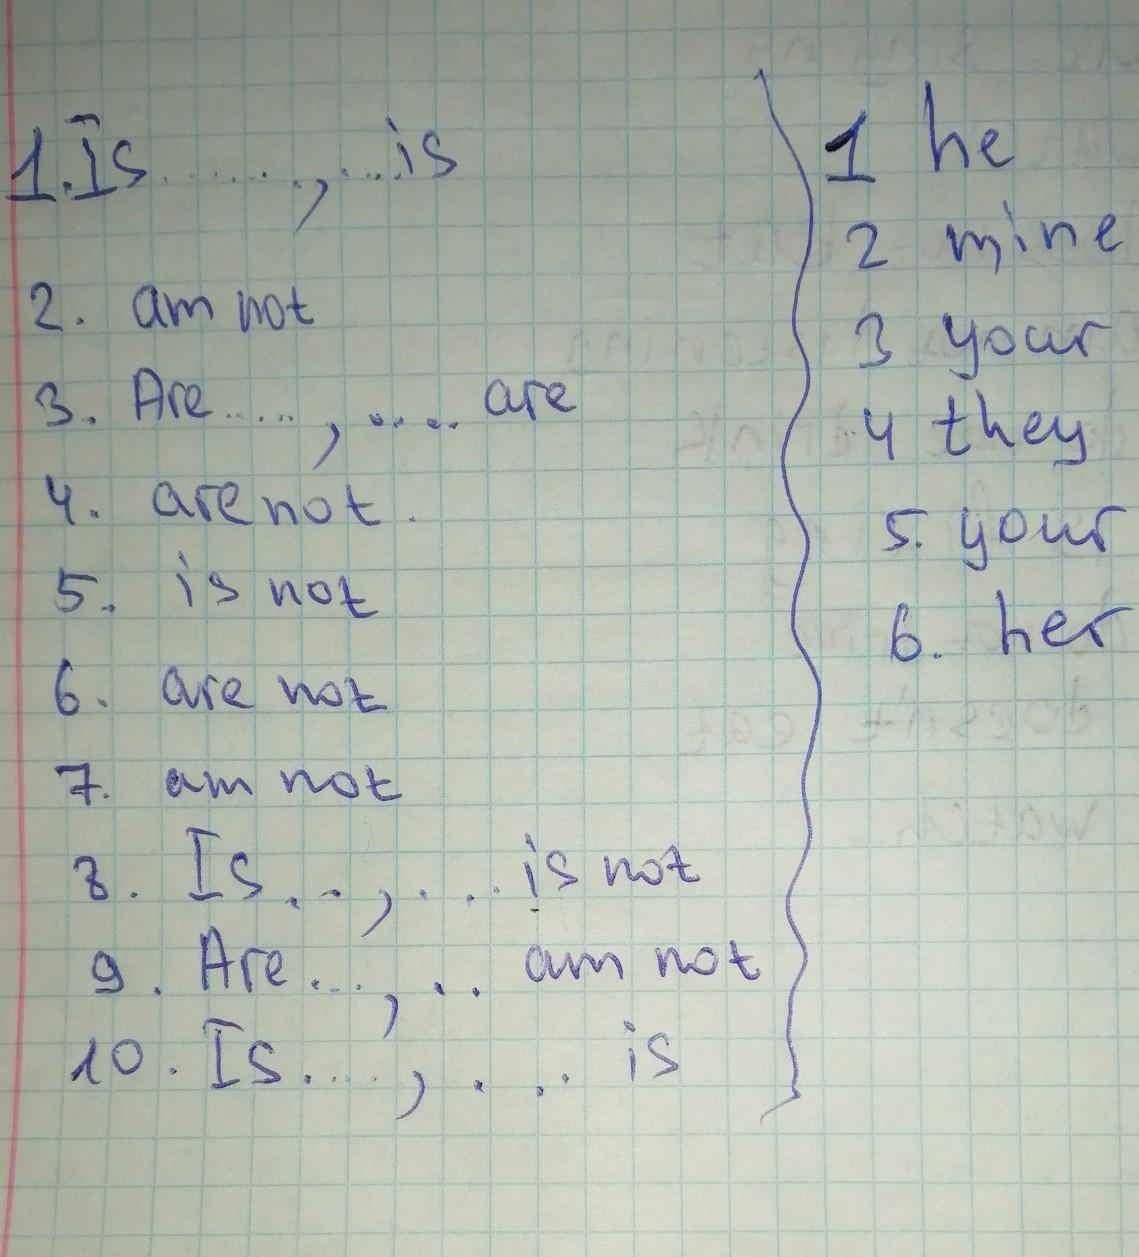 1. Is ......, ....is
2. am not
3. Are ....., ..... are
4. are not.
5. is not
6. are not
7. am not
8. Is ..., ... is not
9. Are ..., .. am not
10. Is ...., ... is
1 he
2 mine
3 your
4 they
5. your
6. her